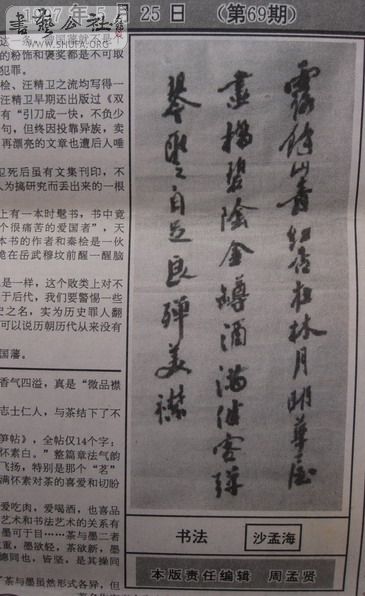 书艺公社
WWW.SHUFA.ORG
1997年5月25日 (第69期)
的粉饰和褒奖都是不可取
犯罪。
桧、汪精卫之流均写得一
汪精卫早期还出版过《双
有“引刀成一快，不负少
句，但终因投靠异族，卖
再漂亮的文章也遭后人唾
卫死后虽有文集刊印，不
人为搞研究而丢出来的一根
上有一本时髦书，书中竟
个很痛苦的爱国者”，天
本书的作者和秦桧是一伙
跪在岳武穆坟前醒一醒脑
是一样，这个败类上对不
于后代，我们要警惕一些
史之名，实为历史罪人翻
可以说历朝历代从来没有
国藩。
香气四溢，真是“微品襟
志士仁人，与茶结下了不
笋帖》，全帖仅14个字：
怀素白。”整篇章法气韵
飞扬，特别是那个“茗”
满怀素对茶的喜爱和切盼
爱吃肉，爱喝酒，也喜品
艺术和书法艺术的关系有
墨可于目……茶与墨二者
重，墨欲轻，茶欲新，墨
德同也，皆坚，是其操同
“茶与墨虽然形式各异，但
露餘山青紅杏在林月明華屋
畫橋碧陰金罇酒滿伴客彈
琴取之自足良殫美襟
书法 沙孟海
本版责任编辑 周孟贤